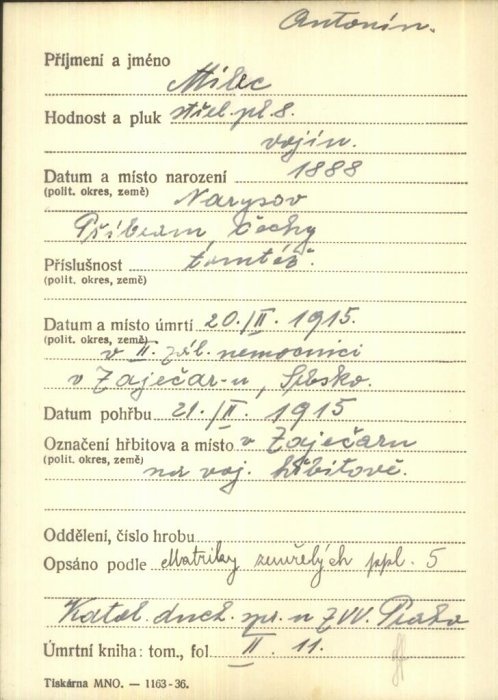 Antonín.
Příjmení a jméno
Milec
Hodnost a pluk střel. pl. 8.
vojín.
Datum a místo narození 1888
(polit. okres, země) Narysov
Příbram, Čechy
Příslušnost tamtéž.
(polit. okres, země)
Datum a místo úmrtí 20./II. 1915.
(polit. okres, země)
v II. zál. nemocnici
v Zaječar-u, Srbsko.
Datum pohřbu 21./II. 1915
Označení hřbitova a místo v Zaječaru
(polit. okres, země) na voj. hřbitově.
Oddělení, číslo hrobu
Opsáno podle Matriky zemřelých ppl. 5
Katol. duch. spr. u ZVV. Praha
Úmrtní kniha: tom., fol. II. 11.
Tiskárna MNO. — 1163-36.